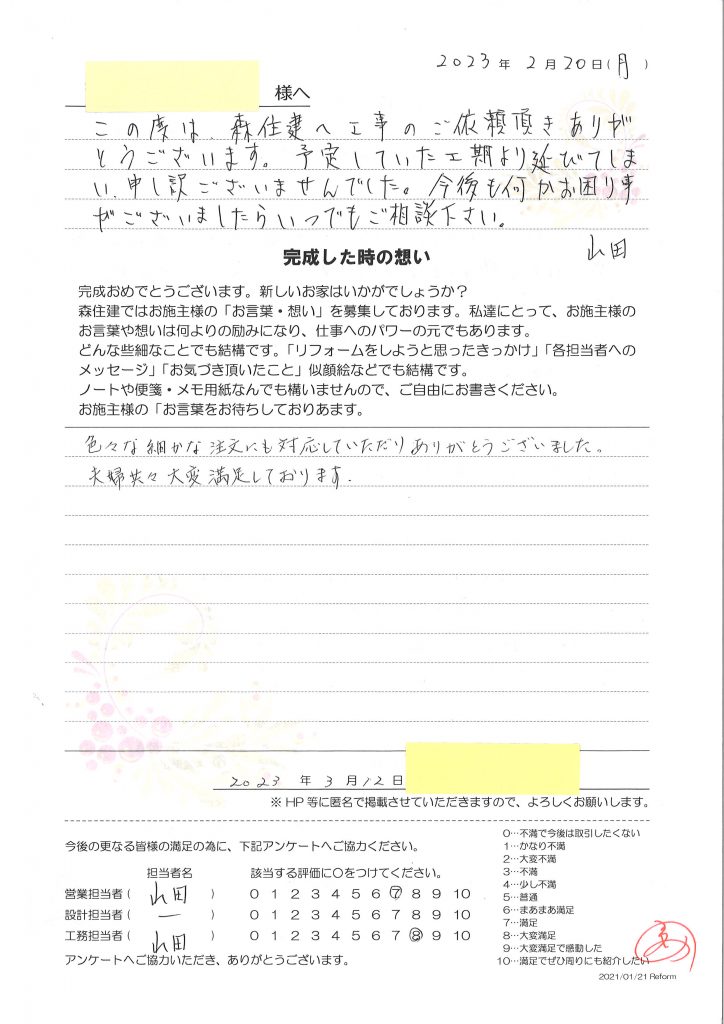 2023年 2月20日(月)
様へ
この度は、森住建へ工事のご依頼頂きありが
とうございます。予定していた工期より延びてしま
い、申し訳ございませんでした。今後も何かお困り事
がございましたらいつでもご相談下さい。
山田
完成した時の想い
完成おめでとうございます。新しいお家はいかがでしょうか?
森住建ではお施主様の「お言葉・想い」を募集しております。私達にとって、お施主様の
お言葉や想いは何よりの励みになり、仕事へのパワーの元でもあります。
どんな些細なことでも結構です。「リフォームをしようと思ったきっかけ」「各担当者への
メッセージ」「お気づき頂いたこと」似顔絵などでも結構です。
ノートや便箋・メモ用紙なんでも構いませんので、ご自由にお書きください。
お施主様の「お言葉をお待ちしておりあます。
色々な細かな注文にも対応していただりありがとうございました。
夫婦共々大変満足しております.
2023 年 3月12日
※HP等に匿名で掲載させていただきますので、よろしくお願いします。
今後の更なる皆様の満足の為に、下記アンケートへご協力ください。
担当者名 該当する評価に○をつけてください。
営業担当者( 山田 ) 0 1 2 3 4 5 6 ⑦ 8 9 10
設計担当者( ー ) 0 1 2 3 4 5 6 7 8 9 10
工務担当者( 山田 ) 0 1 2 3 4 5 6 7 ⑧ 9 10
アンケートへご協力いただき、ありがとうございます。
0…不満で今後は取引したくない
1…かなり不満
2…大変不満
3…不満
4…少し不満
5…普通
6…まあまあ満足
7…満足
8…大変満足
9…大変満足で感動した
10…満足でぜひ周りにも紹介したい
2021/01/21 Reform